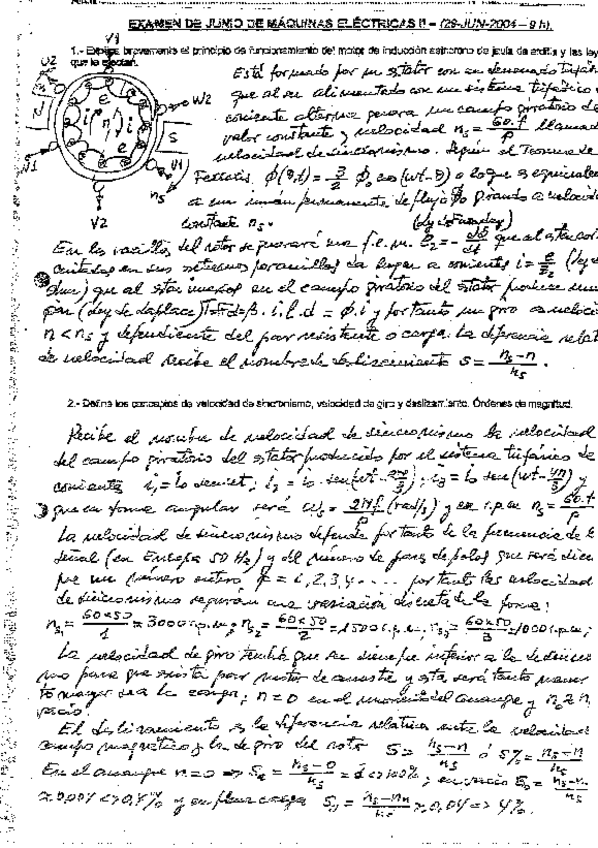 EXAMEN DE JUNIO DE MÁQUINAS ELÉCTRICAS II – (29-JUN-2004 – 9 h).
1.- Explica brevemente el principio de funcionamiento del motor de inducción asíncrono de jaula de ardilla y las ley
que le afectan.
V1
U2
W2
N
S
U1
W1
V2
ns
e
i
n
Está formado por un estator con un devanado trifás
que al ser alimentado con un sistema trifásico
corriente alterna genera un campo giratorio de
valor constante y velocidad ns = 60·f/p llamad
velocidad de sincronismo. Según el Teorema de
Ferraris. ϕ(θ,t) = 3/2 ϕo cos(wt-θ) o lo que es equivalen
a un imán permanente de flujo girando a velocid
constante ns. (ley de Faraday)
En las varillas del rotor se generará una f.e.m. e2 = - dϕ/dt que al estar cor
circuitadas en sus extremos por anillos da lugar a corrientes i = (ley d
Ohm) que al estar inmersas en el campo giratorio del estator produce un
par (ley de Laplace) = β·i·l·d = ϕ·i y por tanto un giro a velocid
n < ns y dependiente del par resistente o carga. La diferencia relat
de velocidad recibe el nombre de deslizamiento s = ns-n/ns.
2.- Define los conceptos de velocidad de sincronismo, velocidad de giro y deslizamiento. Órdenes de magnitud.
Recibe el nombre de velocidad de sincronismo la velocidad
del campo giratorio del estator producido por el sistema trifásico de
corrientes i1 = io sen wt; i2 = io sen(wt - 2π/3); i3 = io sen(wt - 4π/3) y
que en forma angular será ws = 2πf/p (rad/s) y en r.p.m ns = 60·f/p
La velocidad de sincronismo depende por tanto de la frecuencia de l
señal (en Europa 50 Hz) y del número de pares de polos que será siem
pre un número entero p = 1, 2, 3, 4 .... por tanto las velocidad
de sincronismo seguirán una variación discreta de la forma:
ns1 = 60×50/1 = 3000 r.p.m; ns2 = 60×50/2 = 1500 r.p.m; ns3 = 60×50/3 = 1000 r.p.m;
La velocidad de giro tendrá que ser siempre inferior a la de sincro
nismo para que exista par motor de arrastre y esta será tanto menor
cuanto mayor sea la carga; n = 0 en el momento del arranque y n ≈ ns
vacío.
El deslizamiento es la diferencia relativa entre la velocidad
campo magnético y la de giro del rotor S = ns-n/ns ó S% = ns-n/ns
En el arranque n=0 => = ns-0/ns = 1 <=> 100%; en vacío So = ns-n
≈ 0,004 <=> 0,4% y en plena carga Sn = ns-nn/ns ≈ 0,04 => 4%.